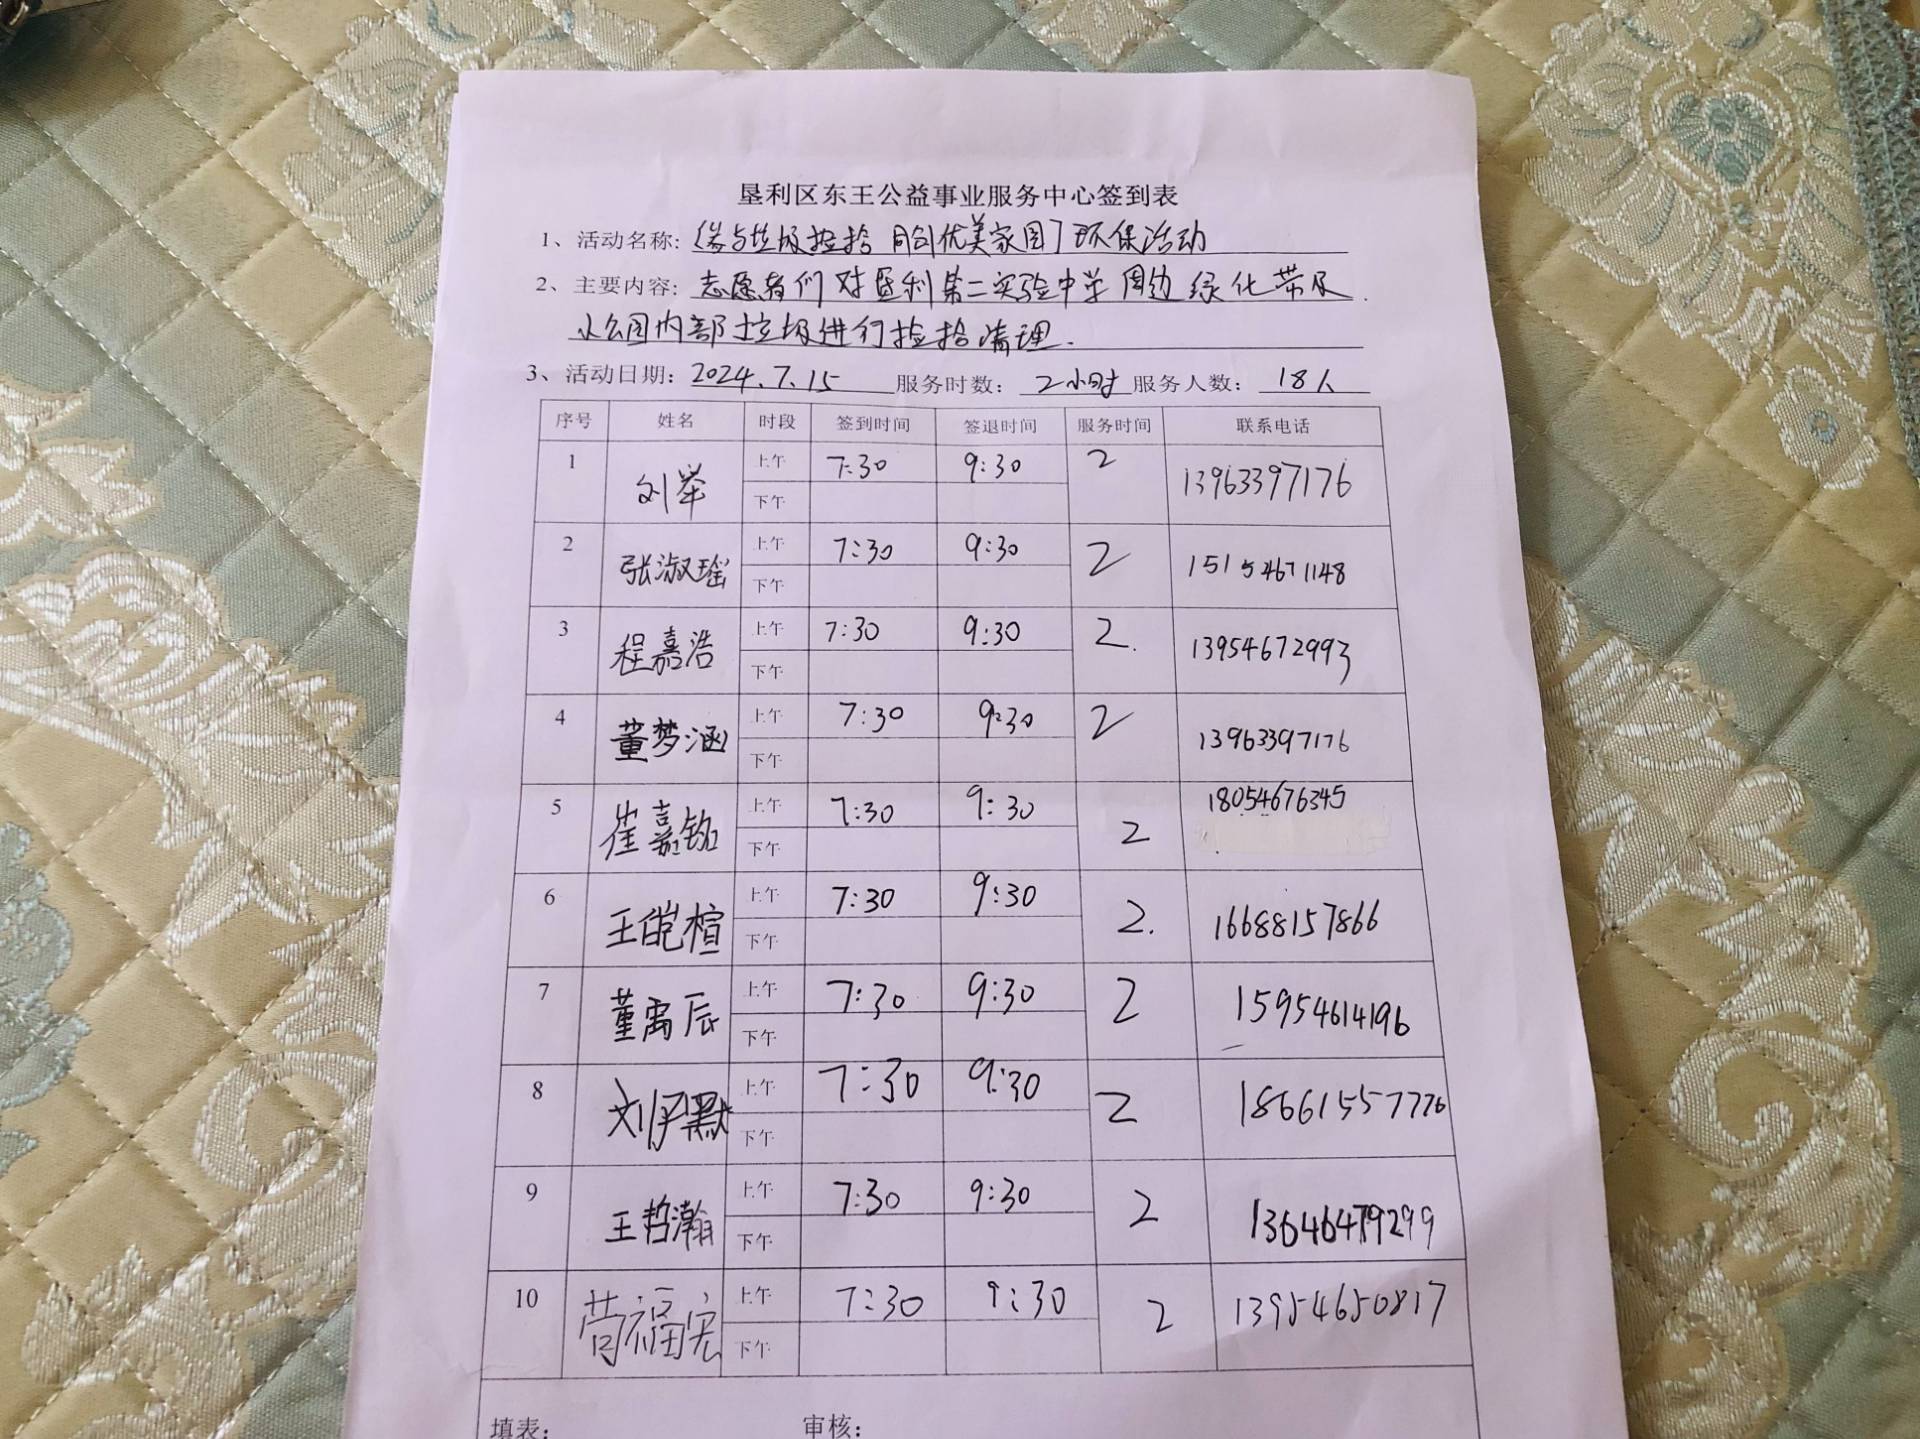 垦利区东王公益事业服务中心签到表
1、活动名称: [参与垃圾捡拾 同创优美家园]环保活动
2、主要内容: 志愿者们对垦利第二实验中学周边绿化带及
小公园内部垃圾进行捡拾清理.
3、活动日期: 2024.7.15 服务时数: 2小时 服务人数: 18人
序号 姓名 时段 签到时间 签退时间 服务时间 联系电话
1 刘举 上午 7:30 9:30 2 13963397176
下午
2 张淑瑶 上午 7:30 9:30 2 15154671148
下午
3 程嘉浩 上午 7:30 9:30 2. 13954672993
下午
4 董梦涵 上午 7:30 9:30 2 13963397176
下午
5 崔嘉铭 上午 7:30 9:30 2 18054676345
下午
6 王皑楦 上午 7:30 9:30 2. 16688157866
下午
7 董禹辰 上午 7:30 9:30 2 15954614196
下午
8 刘伊默 上午 7:30 9:30 2 18661557776
下午
9 王哲瀚 上午 7:30 9:30 2 13646479299
下午
10 苟福宏 上午 7:30 9:30 2 13954650817
下午
填表: 审核: